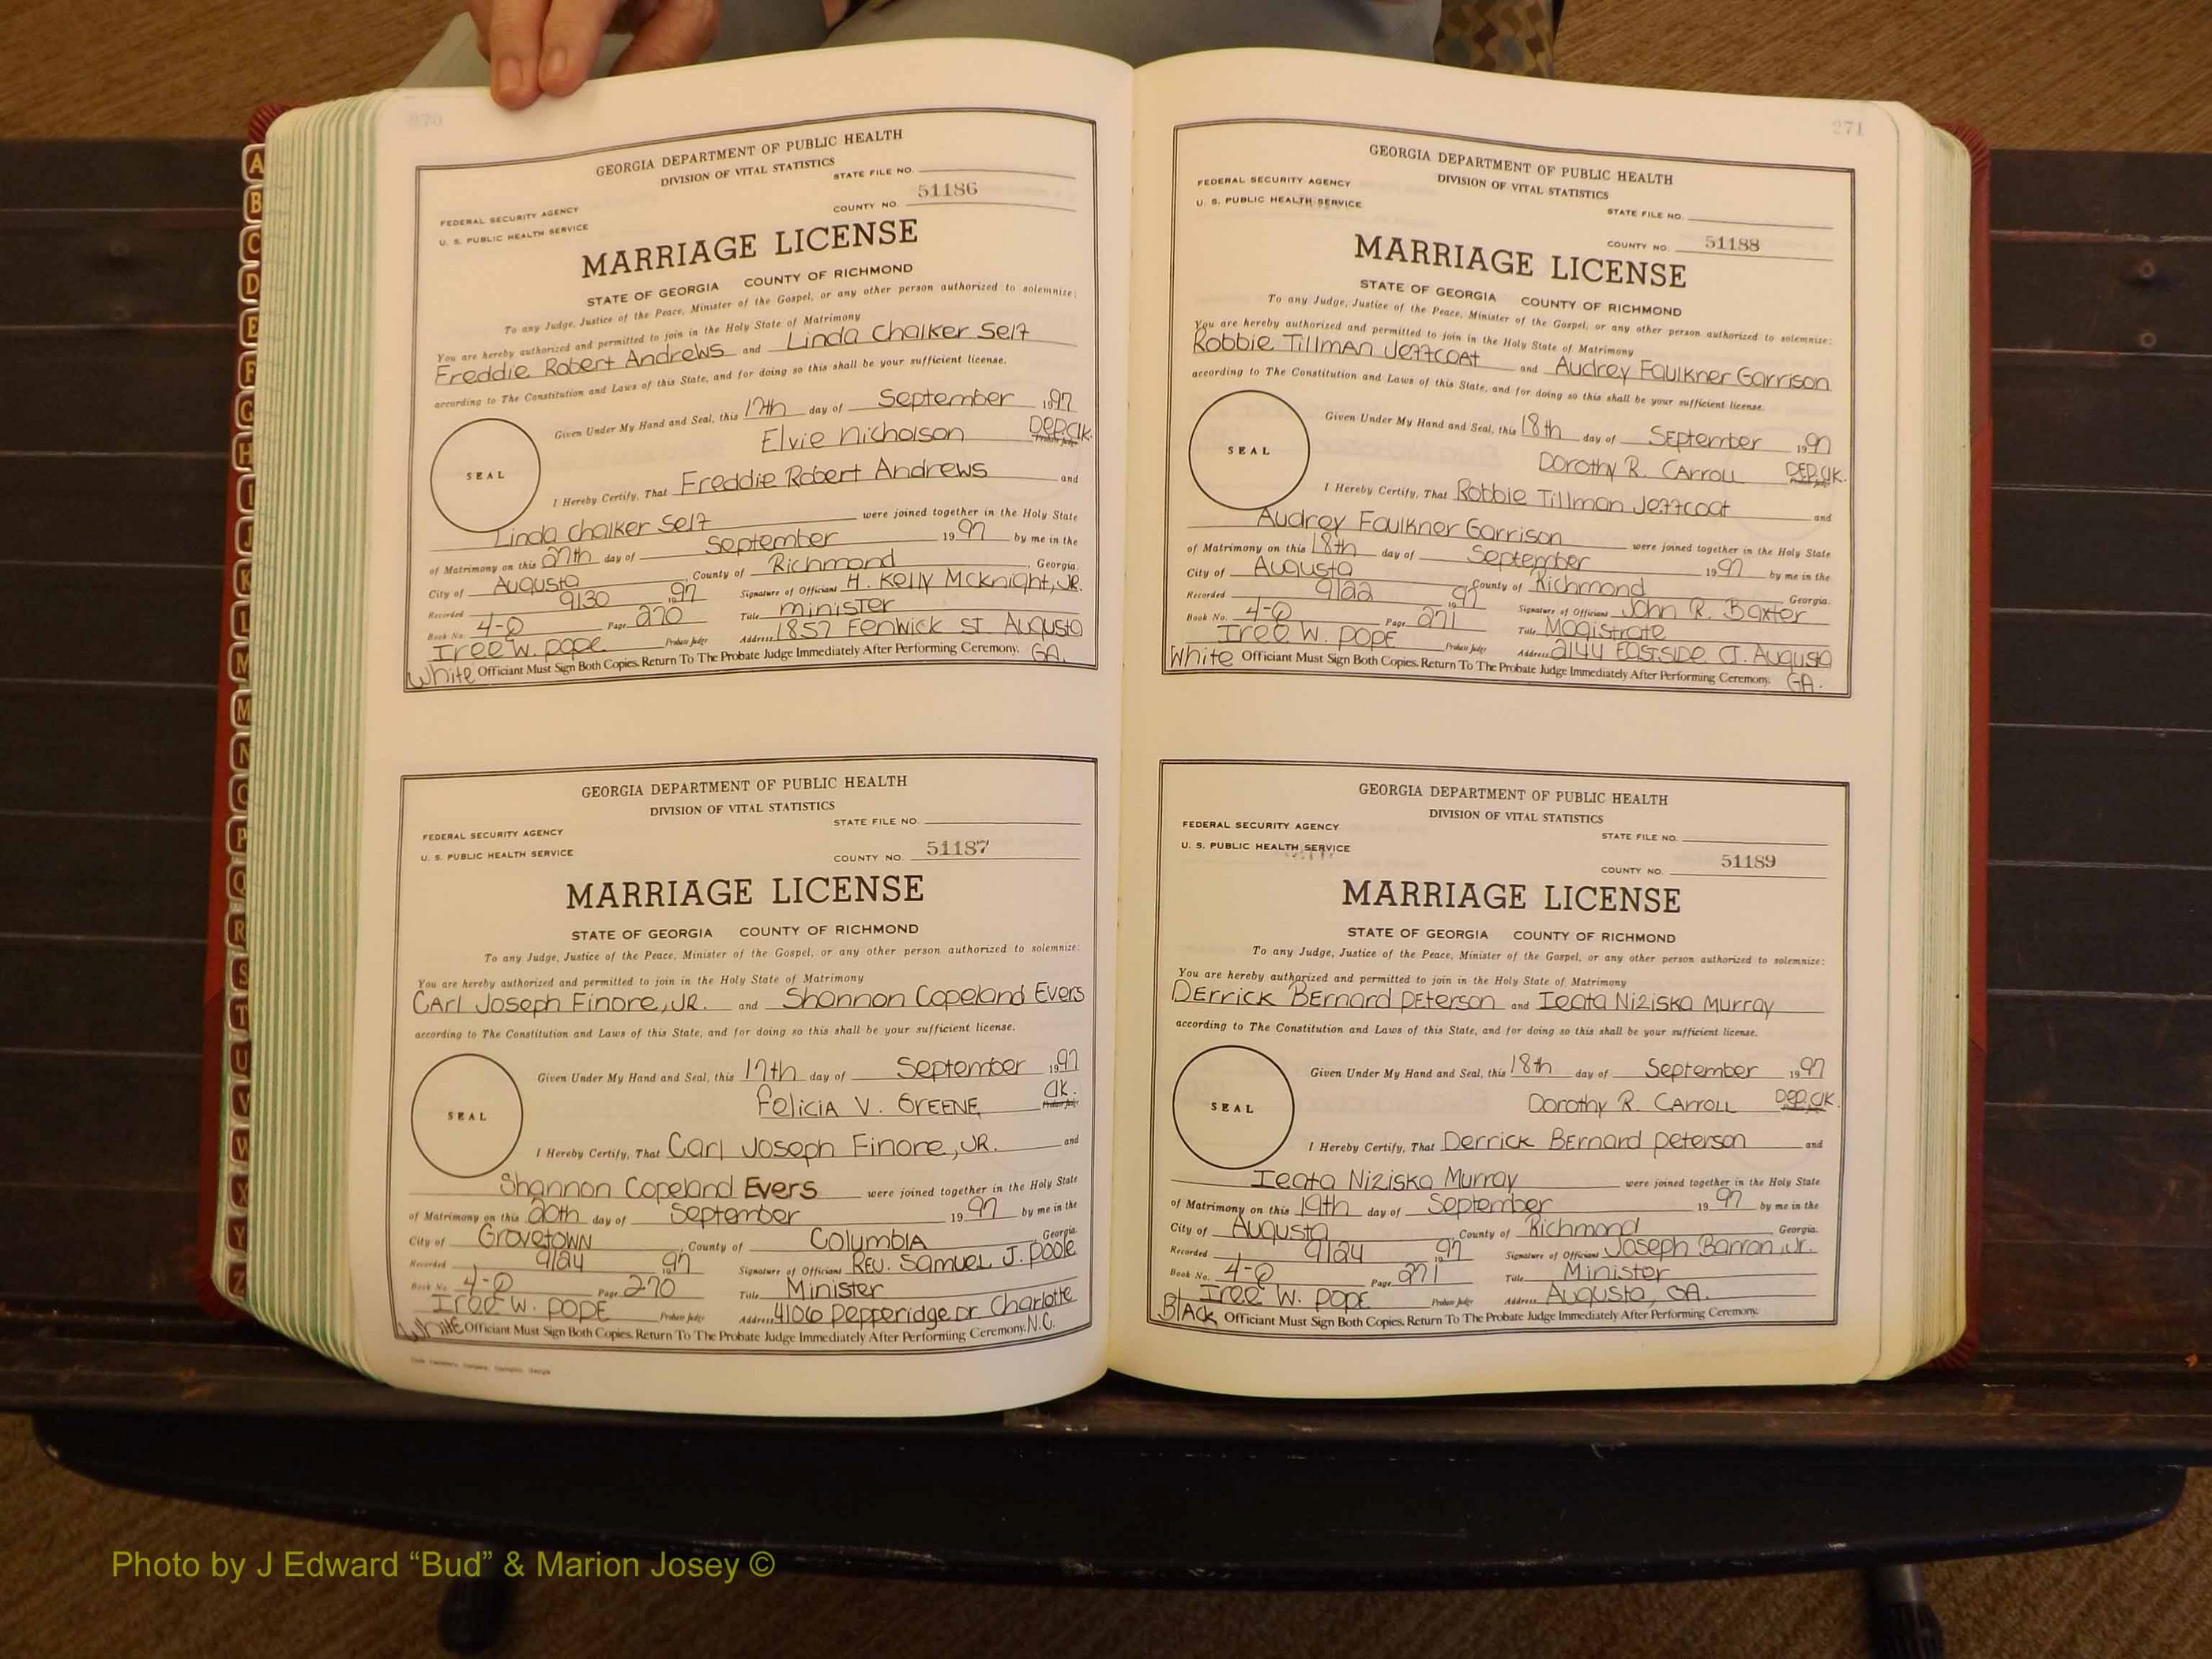 270
GEORGIA DEPARTMENT OF PUBLIC HEALTH
DIVISION OF VITAL STATISTICS
STATE FILE NO.
FEDERAL SECURITY AGENCY
U. S. PUBLIC HEALTH SERVICE
COUNTY NO. 51186
MARRIAGE LICENSE
STATE OF GEORGIA COUNTY OF RICHMOND
To any Judge, Justice of the Peace, Minister of the Gospel, or any other person authorized to solemnize:
You are hereby authorized and permitted to join in the Holy State of Matrimony
Freddie Robert Andrews and Linda Chalker Self
according to The Constitution and Laws of this State, and for doing so this shall be your sufficient license.
Given Under My Hand and Seal, this 17th day of September 1997
Elvie Nicholson DEP. Clk.
Probate Judge
SEAL
I Hereby Certify, That Freddie Robert Andrews and
Linda Chalker Self were joined together in the Holy State
of Matrimony on this 27th day of September 1997 by me in the
City of Augusta, County of Richmond, Georgia.
Recorded 9/30 1997 Signature of Officiant H. Kelly McKnight, JR.
Book No. 4-Q Page 270 Title Minister
Iree W. Pope Probate Judge Address 1857 Fenwick ST Augusta
White Officiant Must Sign Both Copies. Return To The Probate Judge Immediately After Performing Ceremony. GA.
GEORGIA DEPARTMENT OF PUBLIC HEALTH
DIVISION OF VITAL STATISTICS
STATE FILE NO.
FEDERAL SECURITY AGENCY
U. S. PUBLIC HEALTH SERVICE
COUNTY NO. 51187
MARRIAGE LICENSE
STATE OF GEORGIA COUNTY OF RICHMOND
To any Judge, Justice of the Peace, Minister of the Gospel, or any other person authorized to solemnize:
You are hereby authorized and permitted to join in the Holy State of Matrimony
CArl Joseph Finore, JR. and Shannon Copeland Evers
according to The Constitution and Laws of this State, and for doing so this shall be your sufficient license.
Given Under My Hand and Seal, this 17th day of September 1997
Felicia V. Greene Clk.
Probate Judge
SEAL
I Hereby Certify, That Carl Joseph Finore, JR. and
Shannon Copeland Evers were joined together in the Holy State
of Matrimony on this 20th day of September 1997 by me in the
City of Grovetown, County of Columbia Georgia.
Recorded 9/24 1997 Signature of Officiant Rev. Samuel J. Poole
Book No. 4-Q Page 270 Title Minister
Iree W. Pope Probate Judge Address 4106 Pepperidge Dr. Charlotte
White Officiant Must Sign Both Copies. Return To The Probate Judge Immediately After Performing Ceremony. N.C.
271
GEORGIA DEPARTMENT OF PUBLIC HEALTH
DIVISION OF VITAL STATISTICS
FEDERAL SECURITY AGENCY
U. S. PUBLIC HEALTH SERVICE
STATE FILE NO.
COUNTY NO. 51188
MARRIAGE LICENSE
STATE OF GEORGIA COUNTY OF RICHMOND
To any Judge, Justice of the Peace, Minister of the Gospel, or any other person authorized to solemnize:
You are hereby authorized and permitted to join in the Holy State of Matrimony
Robbie Tillman Jeffcoat and Audrey Faulkner Garrison
according to The Constitution and Laws of this State, and for doing so this shall be your sufficient license.
Given Under My Hand and Seal, this 18th day of September 1997
Dorothy R. Carroll DEP. Clk.
Probate Judge
SEAL
I Hereby Certify, That Robbie Tillman Jeffcoat and
Audrey Faulkner Garrison were joined together in the Holy State
of Matrimony on this 18th day of September 1997 by me in the
City of Augusta, County of Richmond Georgia.
Recorded 9/22 1997 Signature of Officiant John R. Baxter
Book No. 4-Q Page 271 Title Magistrate
Iree W. Pope Probate Judge Address 2144 Eastside CT. Augusta
White Officiant Must Sign Both Copies. Return To The Probate Judge Immediately After Performing Ceremony. GA.
GEORGIA DEPARTMENT OF PUBLIC HEALTH
DIVISION OF VITAL STATISTICS
FEDERAL SECURITY AGENCY
U. S. PUBLIC HEALTH SERVICE
STATE FILE NO.
COUNTY NO. 51189
MARRIAGE LICENSE
STATE OF GEORGIA COUNTY OF RICHMOND
To any Judge, Justice of the Peace, Minister of the Gospel, or any other person authorized to solemnize:
You are hereby authorized and permitted to join in the Holy State of Matrimony
Derrick Bernard Peterson and Ieata Niziska Murray
according to The Constitution and Laws of this State, and for doing so this shall be your sufficient license.
Given Under My Hand and Seal, this 18th day of September 1997
Dorothy R. Carroll DEP. Clk.
SEAL
I Hereby Certify, That Derrick Bernard Peterson and
Ieata Niziska Murray were joined together in the Holy State
of Matrimony on this 19th day of September 1997 by me in the
City of Augusta, County of Richmond Georgia.
Recorded 9/24 1997 Signature of Officiant Joseph Barron, Jr.
Book No. 4-Q Page 271 Title Minister
Iree W. Pope Probate Judge Address Augusta, GA.
Black Officiant Must Sign Both Copies. Return To The Probate Judge Immediately After Performing Ceremony.
A
B
C
D
E
F
G
H
I
J
K
L
M
M
N
O
P
Q
R
S
T
U
V
W
X
Y
Z
Photo by J Edward “Bud” & Marion Josey ©